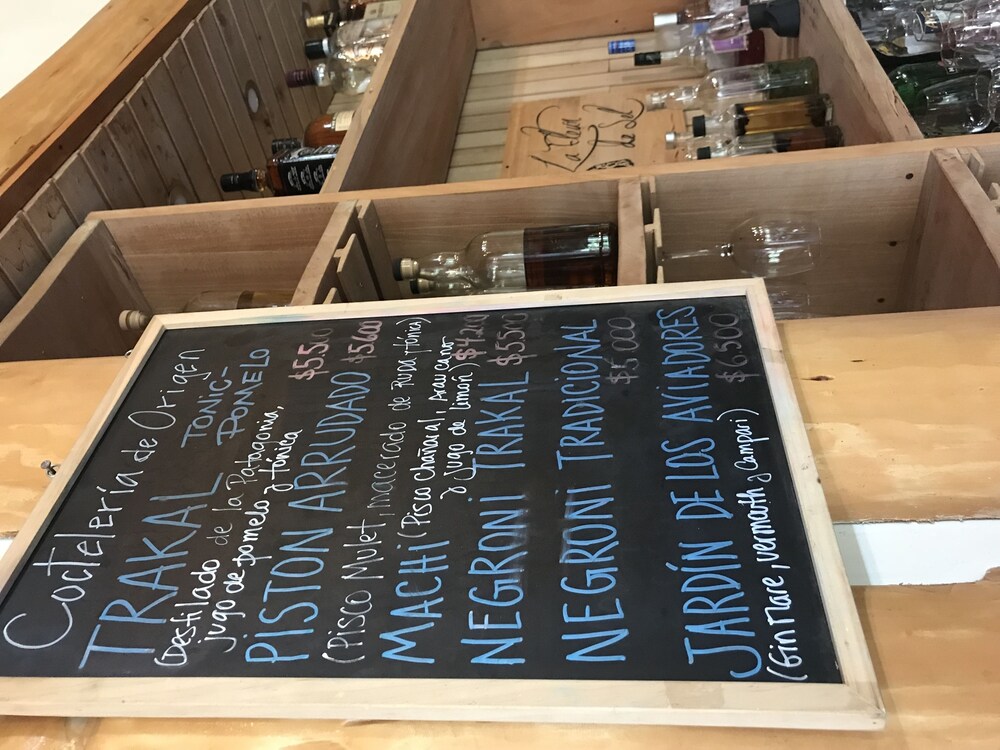 La Flor
de Sal
Coctelería de Origen
TRAKAL TONIC-
POMELO
(Destilado de la Patagonia,
jugo de pomelo y tónica $5.500
PISTON ARRUDADO $5600
(Pisco Mulet, macerado de RUDA y tónica)
MACHI (Pisco Chañaral, Araucano $4200
y jugo de limón)
NEGRONI TRAKAL $5500
NEGRONI TRADICIONAL
$5000
JARDÍN DE LOS AVIADORES
(Gin Mare, vermouth y Campari) $6500